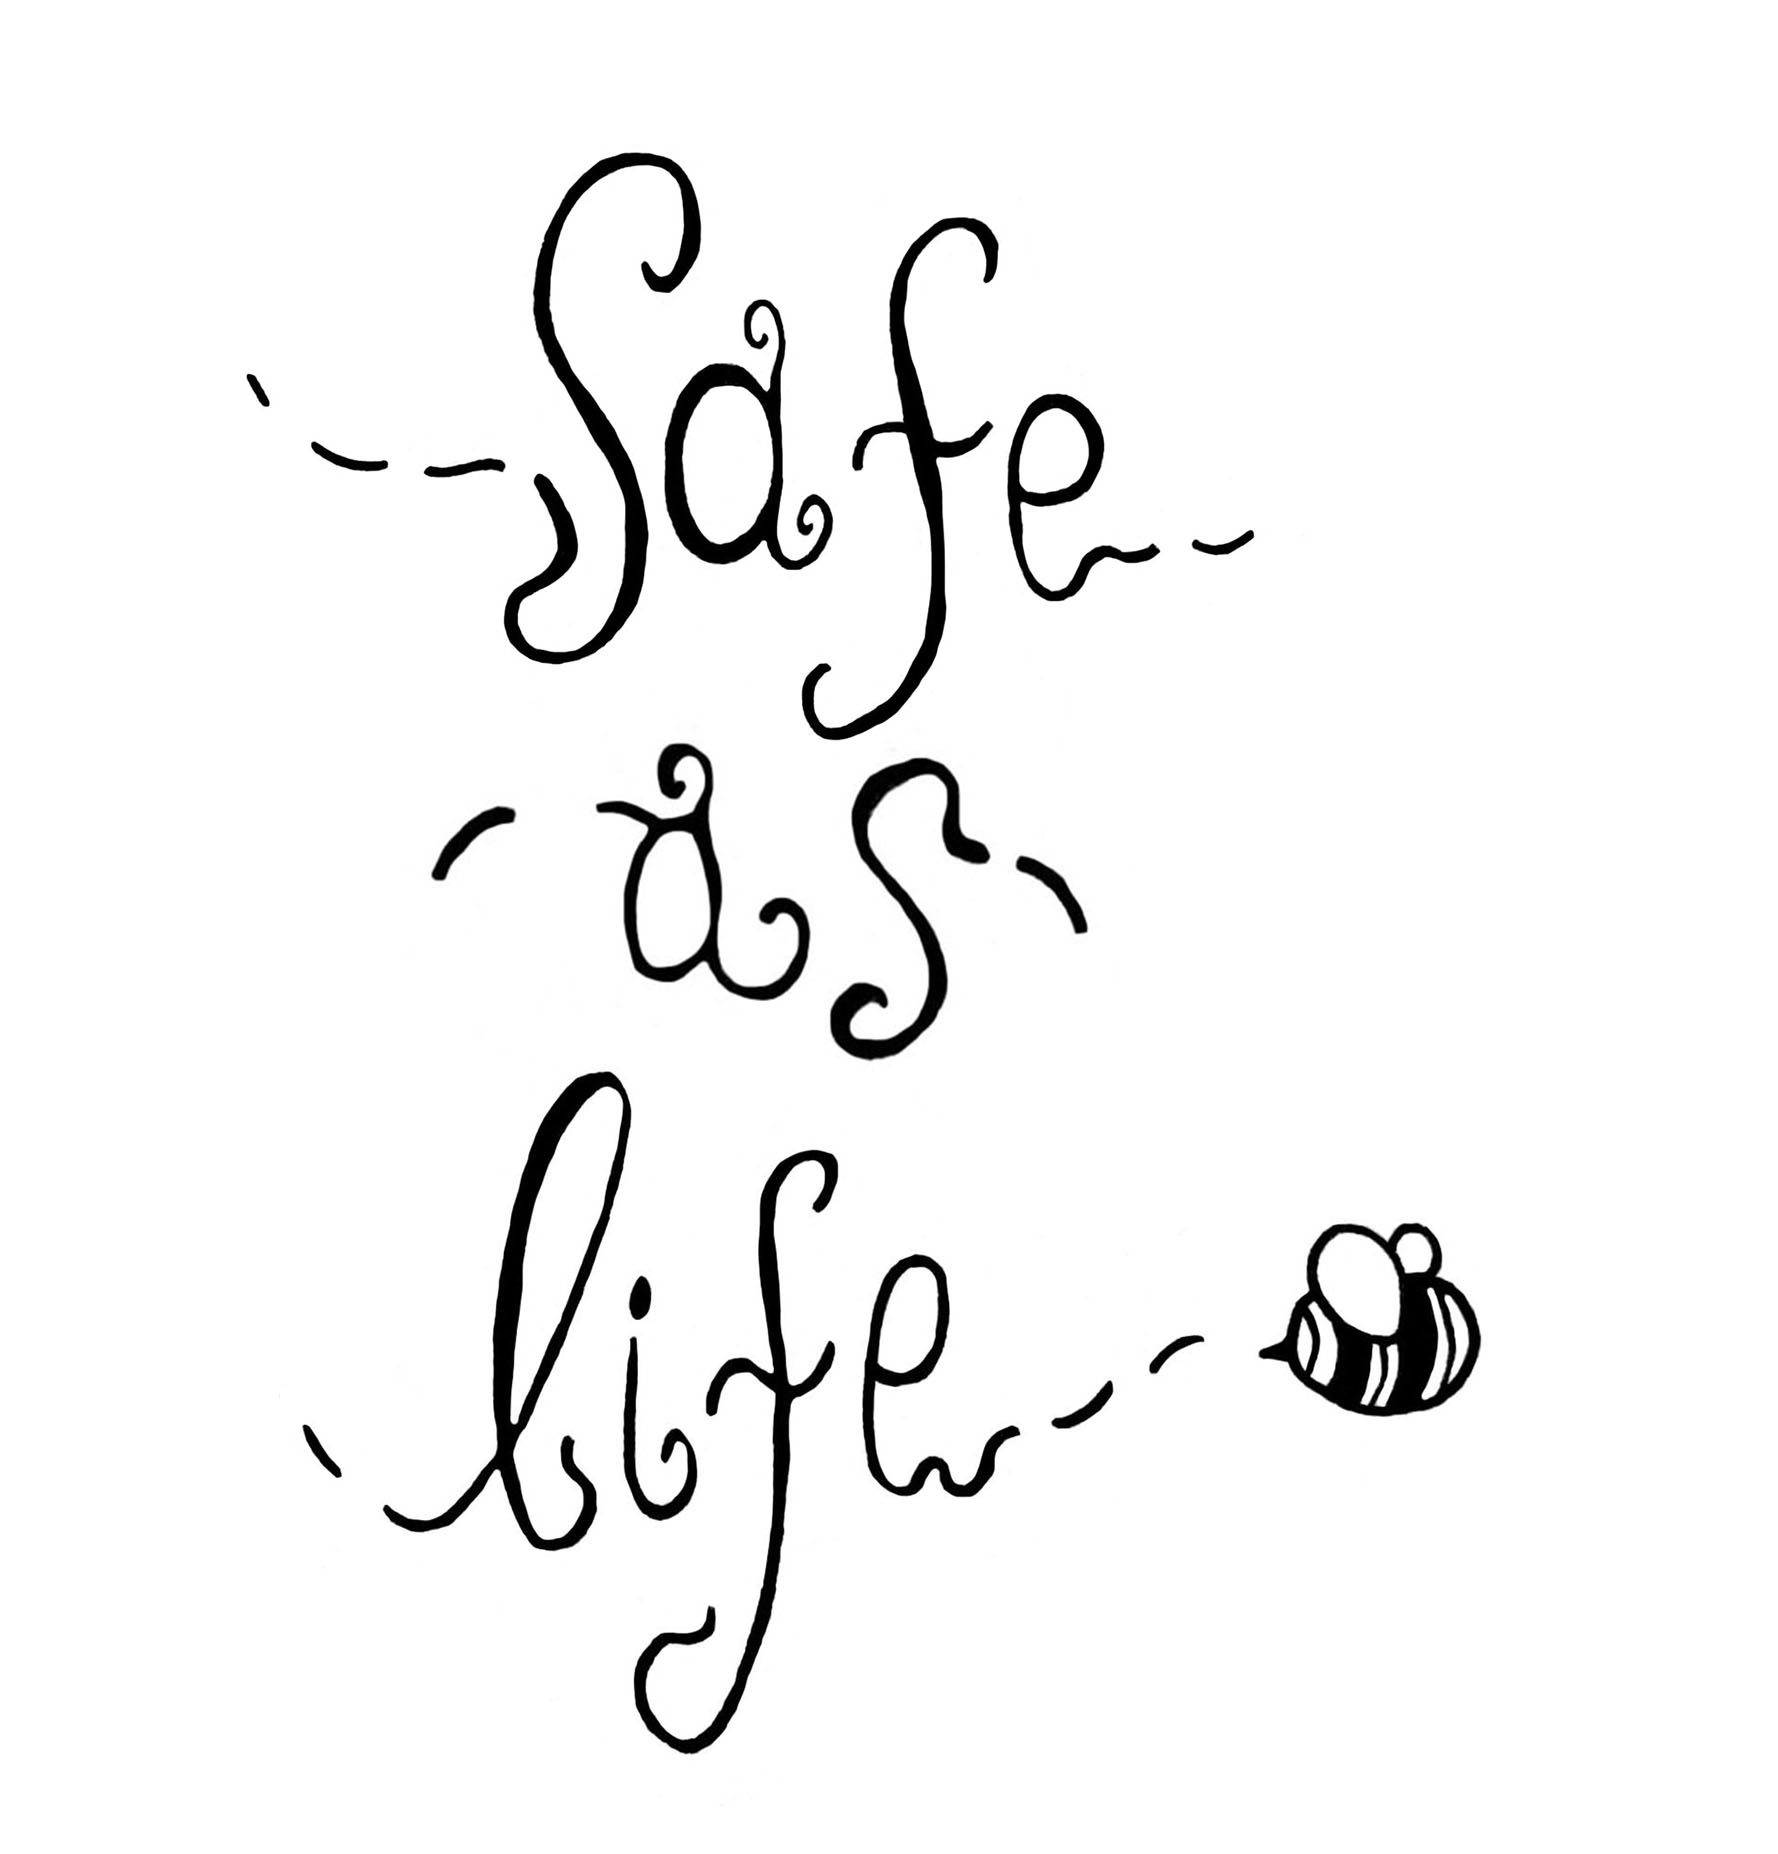 Safe
as
life